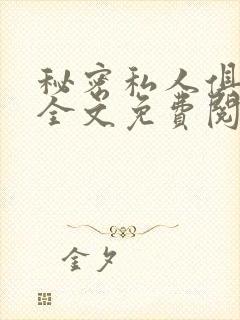 秘密私人俱
全文免费阅
金夕